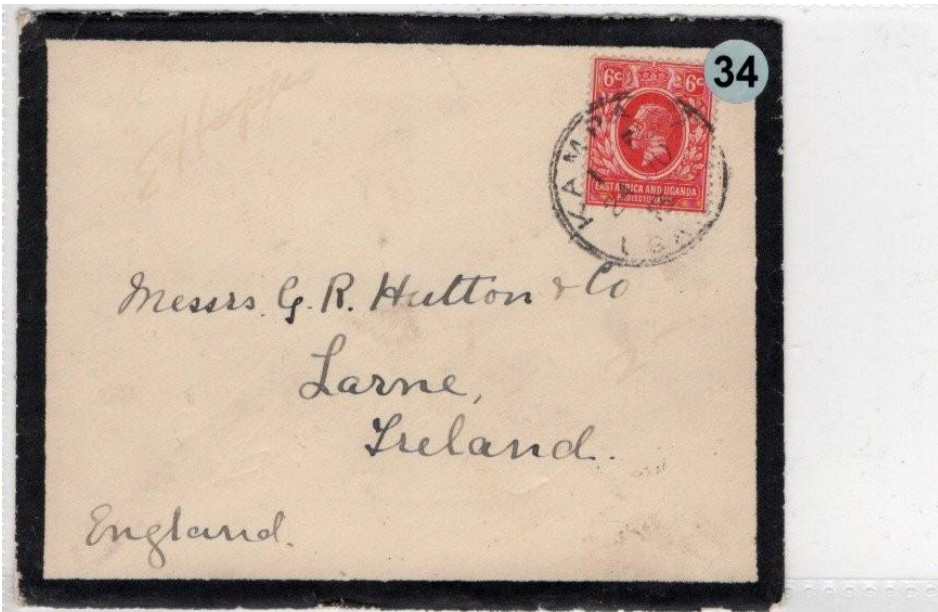 34
6c 6c
EAST AFRICA AND UGANDA
PROTECTORATES
Messrs. G. R. Hutton & Co
Larne,
Ireland.
England.